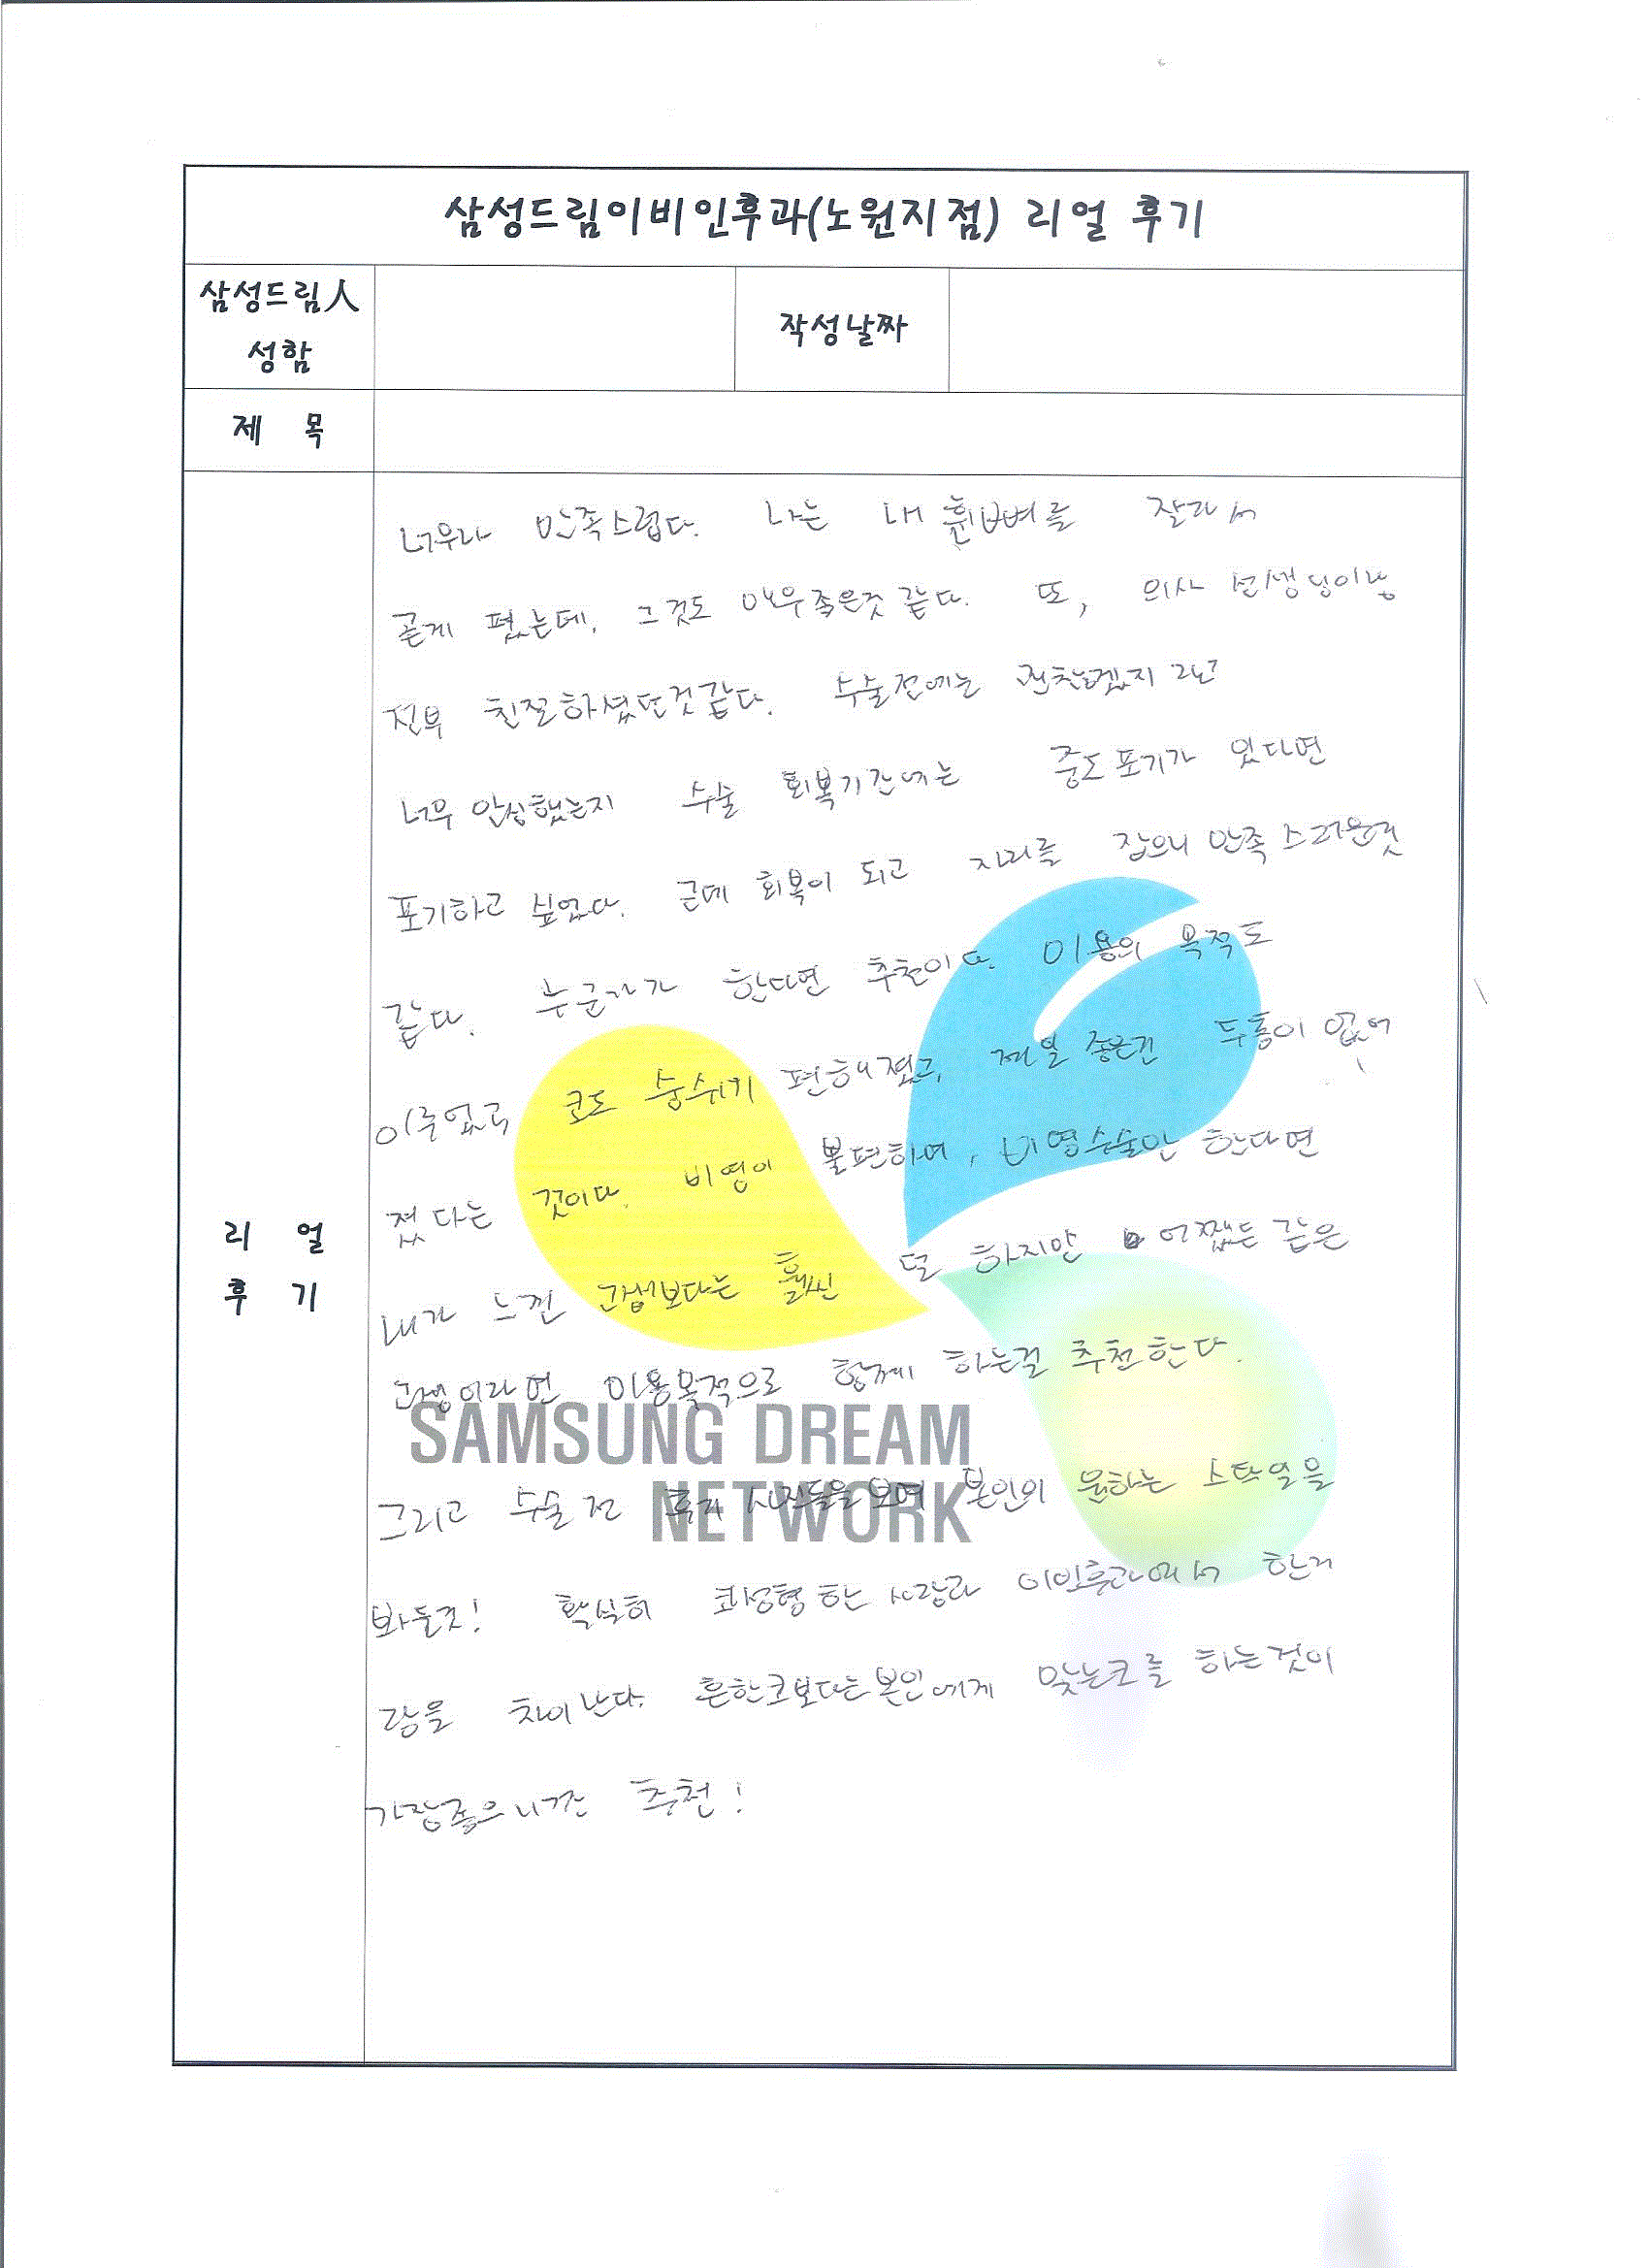 삼성드림이비인후과(노원지점) 리얼 후기
삼성드림人
성함
작성날짜
제 목
리 얼
후 기
너무나 만족스럽다. 나는 내 휜뼈를 잘라서
곧게 폈는데, 그것도 매우좋은것 같다. 또, 의사 선생님이랑
전부 친절하셨던것같다. 수술전에는 괜찮겠지 라고
너무 안심했는지 수술 회복기간에는 중도포기가 있다면
포기하고 싶었다. 근데 회복이 되고 자리를 잡으니 만족스러운것
같다. 누군가가 한다면 추천이다. 미용의 목적도
이루었고 코도 숨쉬기 편해졌고, 제일 좋은건 두통이 없어
졌다는 것이다. 비염이 불편하여, 비염수술만 한다면
내가 느낀 고생보다는 훨씬 덜 하지만 어쨌든 같은
고생이라면 미용목적으로 함께 하는걸 추천한다.
그리고 수술 전 후기 사진들을 보며 본인의 원하는 스타일을
봐둘것! 확실히 코성형한 사람과 이비인후과에서 한거
랑은 차이난다. 흔한코보다는본인에게 맞는코를 하는것이
가장좋으니깐 추천!
SAMSUNG DREAM
NETWORK